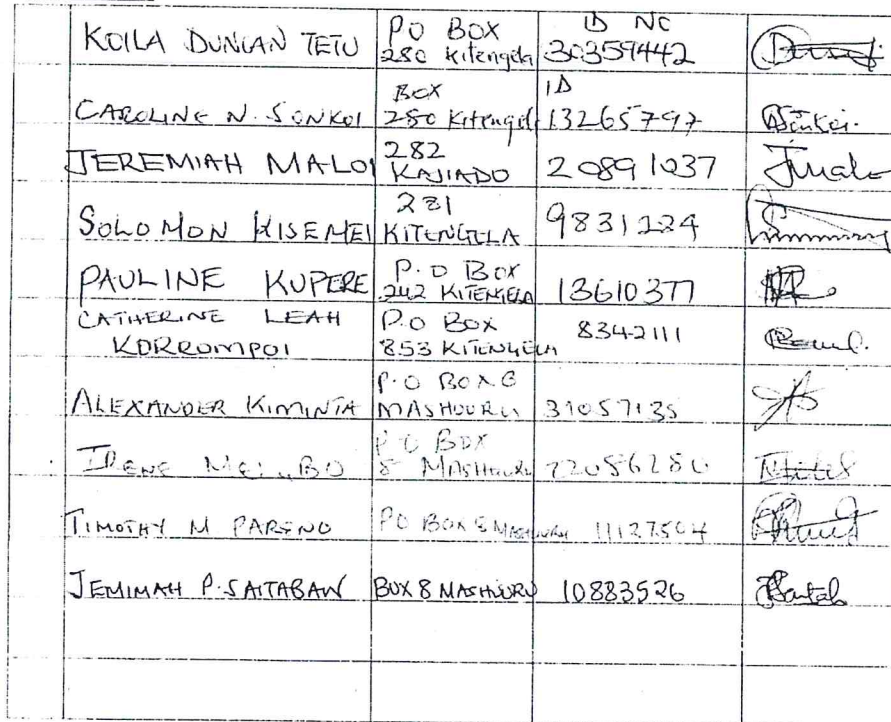 KOILA DUNCAN TETU PO BOX 280 Kitengela ID NO 30359442
CAROLINE N. SONKOI BOX 280 Kitengela ID 13265797
JEREMIAH MALOI 282 KAJIADO 20891037
SOLOMON KISEMEI 281 KITENGELA 9831224
PAULINE KUPERE P.O BOX 242 KITENGELA 13610377
CATHERINE LEAH KORROMPOI P.O BOX 853 KITENGELA 8342111
ALEXANDER KIMINTA P.O BOX 8 MASHUURU 31057135
IRENE P O BOX 8 MASHUURU 22056280
TIMOTHY M PARENO PO BOX 8 MASHUURU 11127504
JEMIMAH P. SAITABAN BOX 8 MASHUURU 10883526